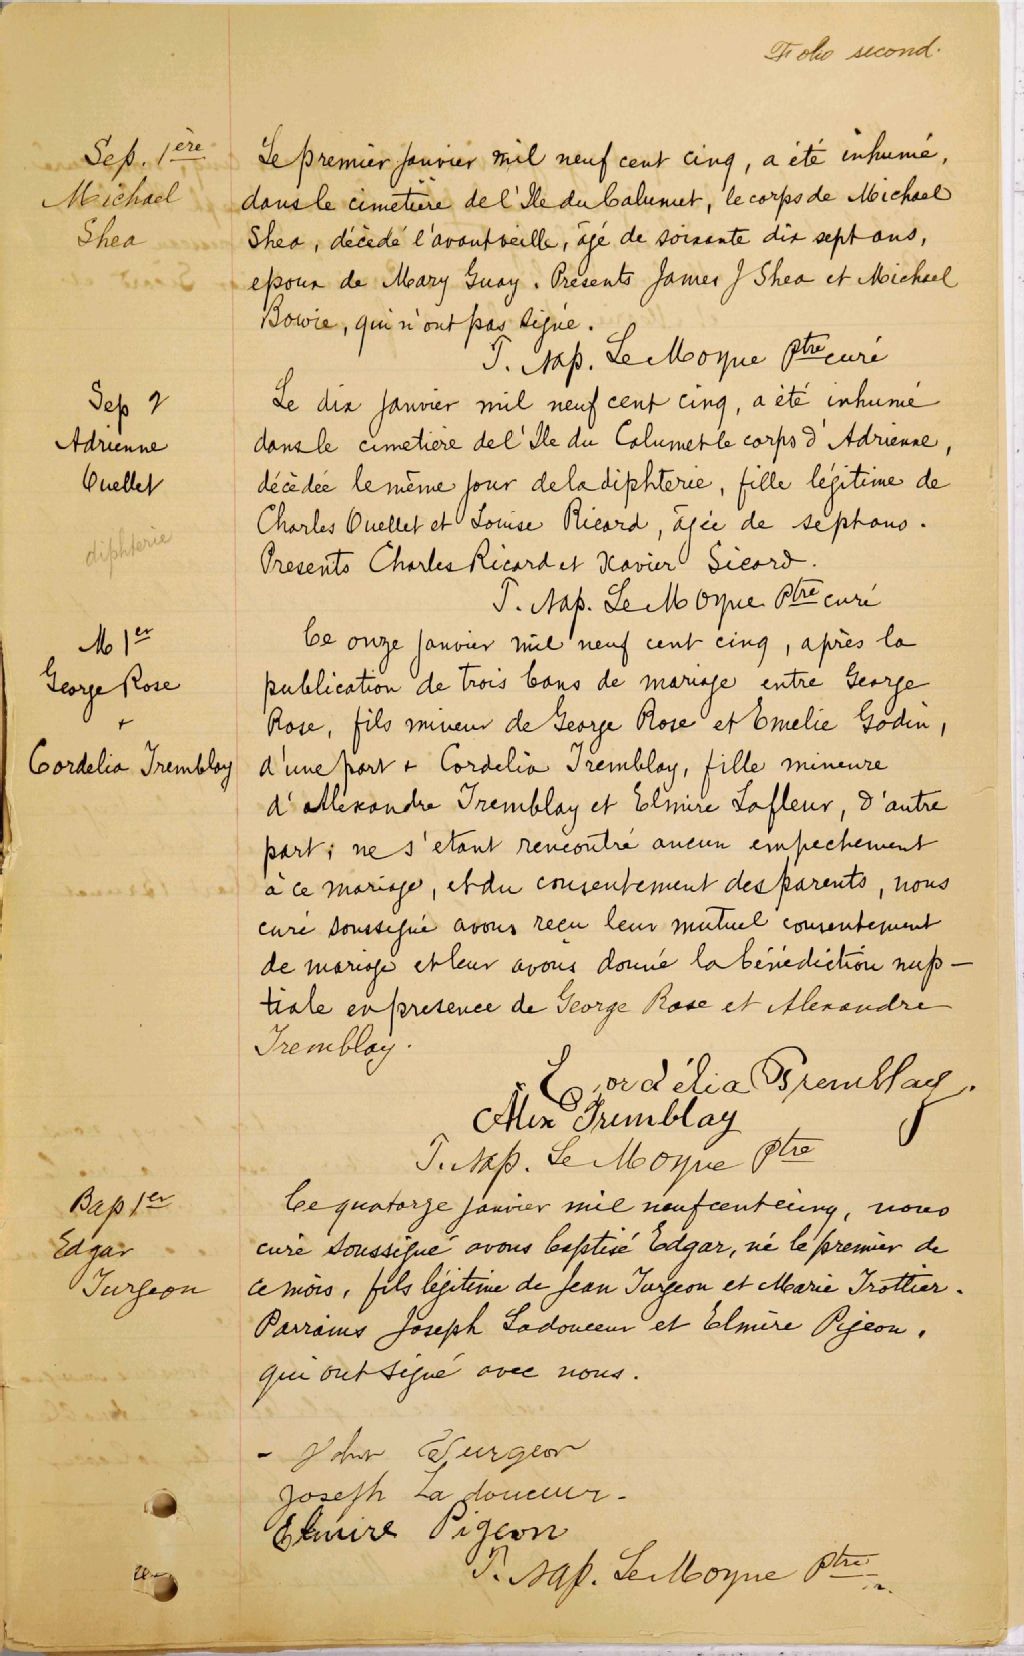 Folio second.
Sep. 1ère
Michael
Shea
Le premier janvier mil neuf cent cinq, a été inhumé,
dans le cimetière de l'Ile du Calumet, le corps de Michael
Shea, décédé l'avant veille, âgé de soixante dix sept ans,
epoux de Mary Guay. Présents James J Shea et Michael
Bowie, qui n'ont pas signé.
T. Nap. Le Moyne Ptre curé
Sep 2
Adrienne
Ouellet
diphterie
Le dix janvier mil neuf cent cinq, a été inhumé
dans le cimetière de l'Ile du Calumet le corps d'Adrienne,
décédée le même jour de la diphterie, fille légitime de
Charles Ouellet et Louise Ricard, âgée de sept ans.
Presents Charles Ricard et Xavier Sicard.
T. Nap. Le Moyne Ptre curé
M 1er
George Rose
+
Cordelia Tremblay
Ce onze janvier mil neuf cent cinq, après la
publication de trois bans de mariage entre George
Rose, fils mineur de George Rose et Emelie Godin,
d'une part + Cordelia Tremblay, fille mineure
d'Alexandre Tremblay et Elmire Lafleur, d'autre
part; ne s'etant rencontré aucun empechement
à ce mariage, et du consentement des parents, nous
curé soussigné avons reçu leur mutuel consentement
de mariage et leur avons donné la bénédiction nup-
tiale en presence de George Rose et Alexandre
Tremblay.
Cordélia Tremblay.
Alex Tremblay
T. Nap. Le Moyne Ptre
Bap 1er
Edgar
Turgeon
Ce quatorze janvier mil neuf cent cinq, nous
curé soussigné avons baptisé Edgar, né le premier de
ce mois, fils légitime de Jean Turgeon et Marie Trottier.
Parrains Joseph Ladouceur et Elmire Pigeon,
qui ont signé avec nous.
- John Turgeon
Joseph Ladouceur-
Elmire Pigeon
T. Nap. Le Moyne Ptre